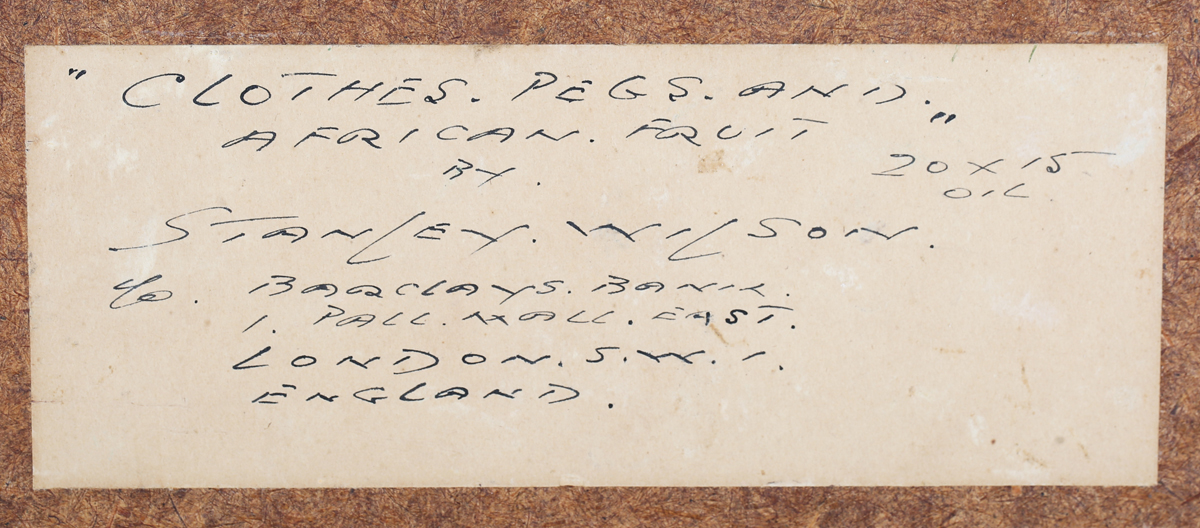 " CLOTHES. PEGS. AND.
AFRICAN. FRUIT "
BY.
20 X 15
OIL.
STANLEY. WILSON.
c/o. BARCLAYS. BANK.
1. PALL. MALL. EAST.
LONDON. S.W. 1.
ENGLAND.